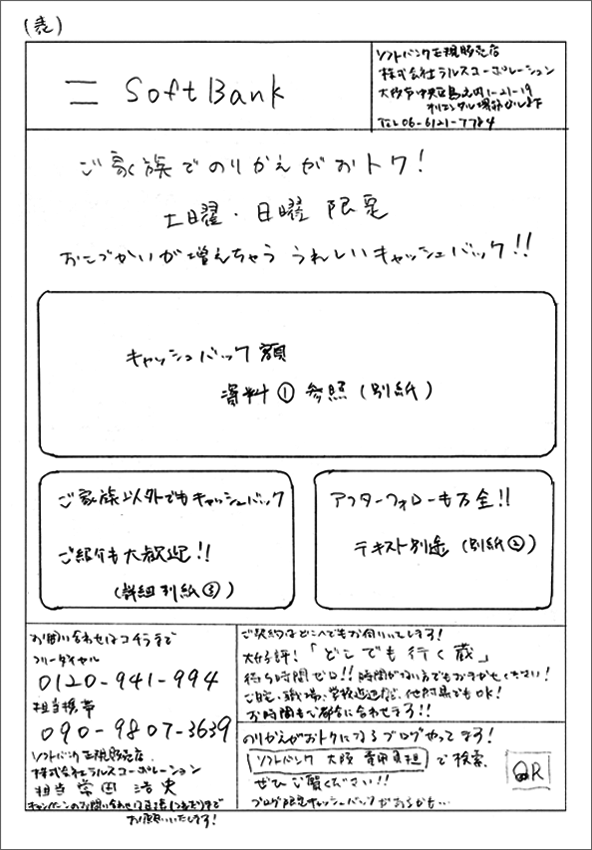 (表)
SoftBank
ソフトバンク正規販売店
株式会社ラルスコーポレーション
大阪市中央区島之内1-21-19
オリエンタル堺筋ビルB下
TEL 06-6121-7784
ご家族でのりかえがおトク!
土曜・日曜 限定
おこづかいが増えちゃう うれしいキャッシュバック!!
キャッシュバック額
資料① 参照(別紙)
ご家族以外でもキャッシュバック
ご紹介も大歓迎!!
(詳細別紙③)
アフターフォローも万全!!
テキスト別途(別紙②)
お問い合わせはコチラまで
フリーダイヤル
0120-941-994
担当携帯
090-9807-3639
ソフトバンク正規販売店
株式会社ラルスコーポレーション
担当 常田
キャンペーンのお問い合わせは直接 常田まで
お願いいたします!
ご契約はどこへでもお伺いいたします!
大好評!「どこでも行く蔵」
待ち時間ゼロ!!時間がない方でもおまかせください!
ご自宅・職場・学校近辺など、他府県でもOK!
お時間もご都合に合わせます!!
のりかえがおトクになるブログやってます!
ソフトバンク 大阪 費用負担 で検索
ぜひご覧ください!!
ブログ限定キャッシュバックがあるかも…
QR